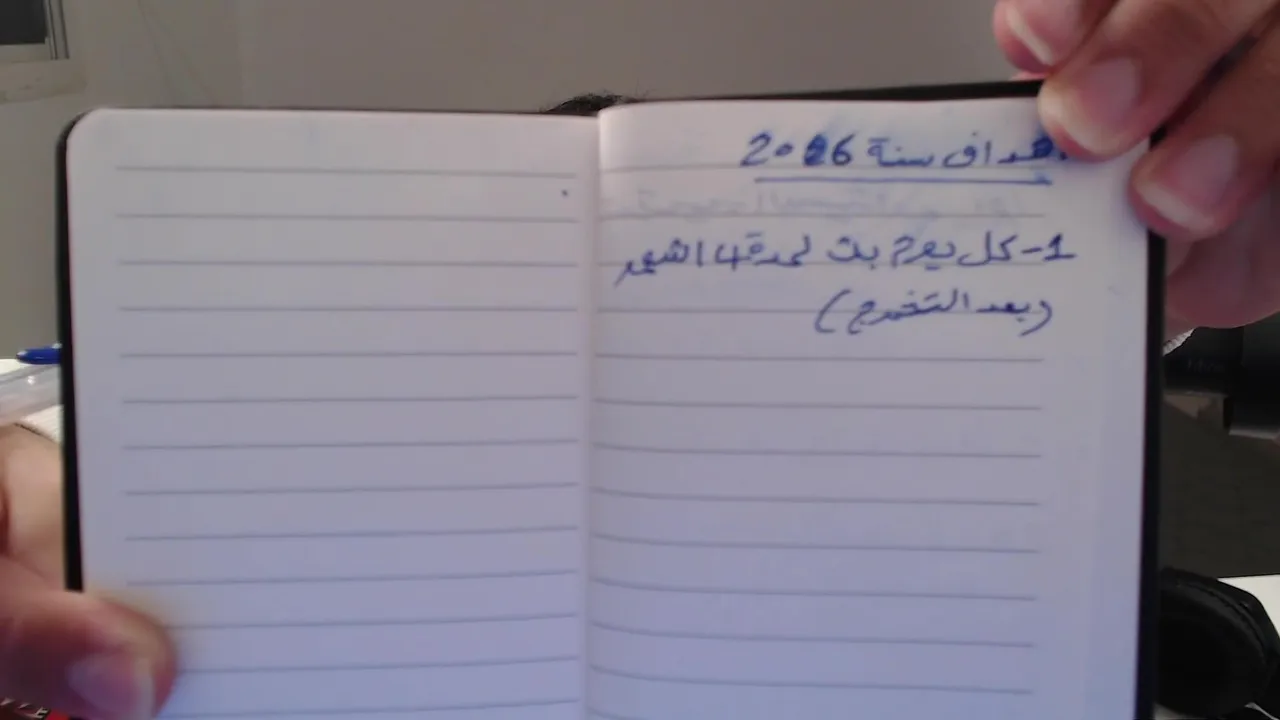 أهداف سنة 2026
1- كل يوم بث لمدة 4 اشهر
(بعد التخرج)